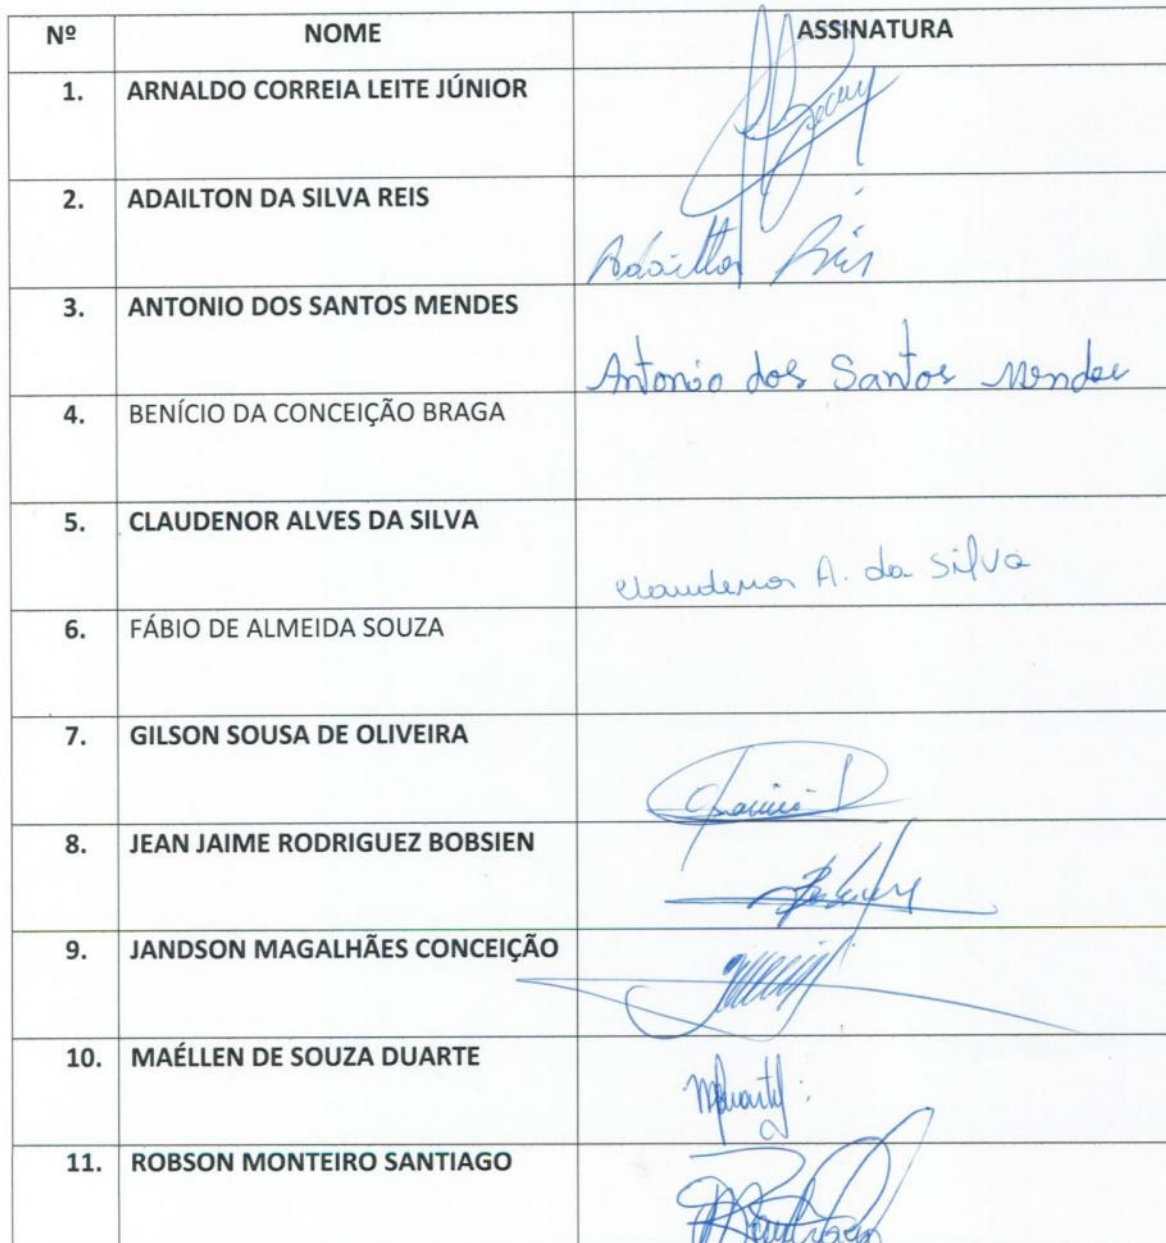 Nº NOME ASSINATURA
1. ARNALDO CORREIA LEITE JÚNIOR
2. ADAILTON DA SILVA REIS
Adailton Reis
3. ANTONIO DOS SANTOS MENDES
Antonio dos Santos Mendes
4. BENÍCIO DA CONCEIÇÃO BRAGA
5. CLAUDENOR ALVES DA SILVA
Claudenor A. da Silva
6. FÁBIO DE ALMEIDA SOUZA
7. GILSON SOUSA DE OLIVEIRA
8. JEAN JAIME RODRIGUEZ BOBSIEN
9. JANDSON MAGALHÃES CONCEIÇÃO
10. MAÉLLEN DE SOUZA DUARTE
11. ROBSON MONTEIRO SANTIAGO